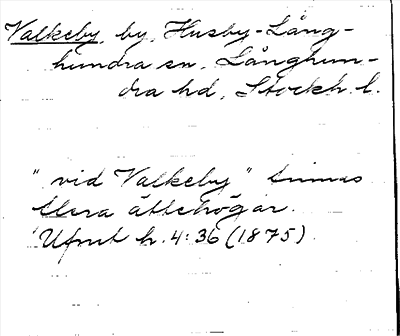 Valkeby, by, Husby-Lång-
hundra sn, Långhun-
dra hd, Stockh. l.
"vid Valkeby" finnas
flera ättehögar.
Ufmt h. 4:36 (1875)